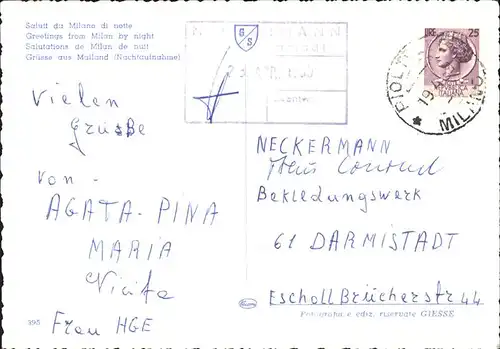 Saluti da Milano di notte
Greetings from Milan by night
Salutations de Milan de nuit
Grüsse aus Mailand (Nachtaufnahme)
G S
LIRE 25
MILANO
Vielen
Grüsse
von -
AGATA-PINA
MARIA
Frau HGE
NECKERMANN
Herr Conrad
Bekledungswerk
61 DARMISTADT
Escholl Brücherstr 44
395
Fotografia e ediz. riservate GIESSE